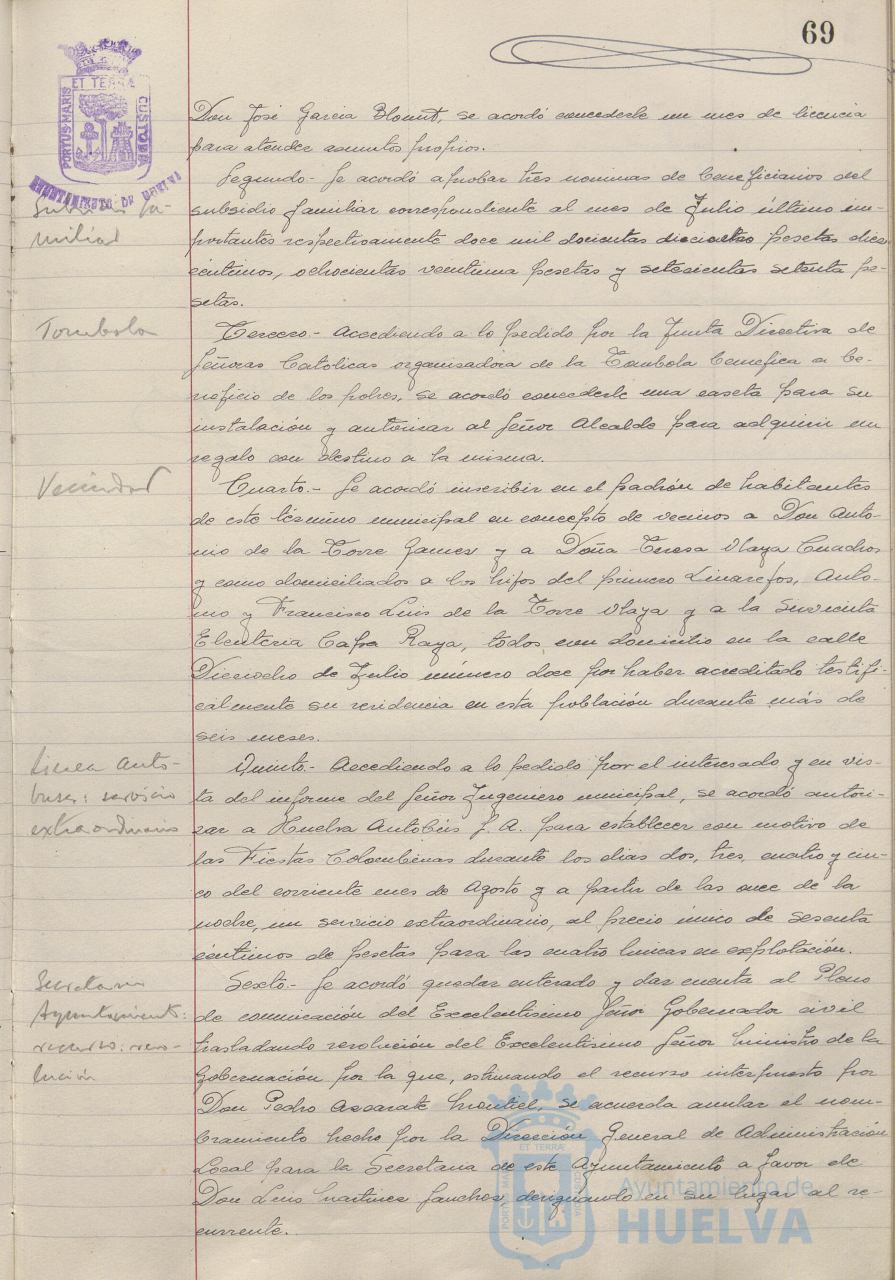 69
PORTUS MARIS ET TERRÆ CUSTODIA
AYUNTAMIENTO DE HUELVA
Don José Garcia Blount, se acordó concederle un mes de licencia
para atender asuntos propios.
Subsidio fa-
miliar
Segundo.- Se acordó aprobar tres nominas de beneficiarios del
subsidio familiar correspondiente al mes de Julio último im-
portantes respectivamente doce mil docientas dieciocho pesetas diez
céntimos, ochocientas veintiuna pesetas y setecientas setenta pe-
setas.
Tombola
Tercero.- Accediendo a lo pedido por la Junta Directiva de
Señoras Catolicas organizadora de la Tombola Benefica a be-
neficio de los pobres, se acordó concederle una caseta para su
instalación y autorizar al Señor Alcalde para adquirir un
regalo con destino a la misma.
Vecindad
Cuarto.- Se acordó inscribir en el padrón de habitantes
de este término municipal en concepto de vecinos a Don Anto-
nio de la Torre Gamez y a Doña Teresa Olaya Cuadros
y como domiciliados a los hijos del primero Linarejos, Anto-
nio y Francisco Luis de la Torre Olaya y a la sirvienta
Eleuteria Capa Raya, todos con domicilio en la calle
Dieciocho de Julio número doce por haber acreditado testifi-
calmente su residencia en esta población durante más de
seis meses.
Linea Auto-
buses: servicio
extraordinario
Quinto.- Accediendo a lo pedido por el interesado y en vis-
ta del informe del Señor Ingeniero municipal, se acordó autori-
zar a Huelva Autobús S.A. para establecer con motivo de
las Fiestas Colombinas durante los dias dos, tres, cuatro y cin-
co del corriente mes de Agosto y a partir de las once de la
noche, un servicio extraordinario, al precio único de sesenta
céntimos de pesetas para las cuatro lineas en explotación.
Secretario
Ayuntamiento:
recurso: reso-
lución
Sexto.- Se acordó quedar enterado y dar cuenta al Pleno
de comunicación del Excelentisimo Señor Gobernador civil
trasladando resolución del Excelentisimo Señor Ministro de la
Gobernación por la que, estimando el recurso interpuesto por
Don Pedro Azcarate Montiel, se acuerda anular el nom-
bramiento hecho por la Dirección General de Administración
Local para la Secretaria de este Ayuntamiento a favor de
Don Luis Martinez Sanchez, designando en su lugar al re-
currente.
PORTUS MARIS ET TERRÆ CUSTODIA
Ayuntamiento de
HUELVA